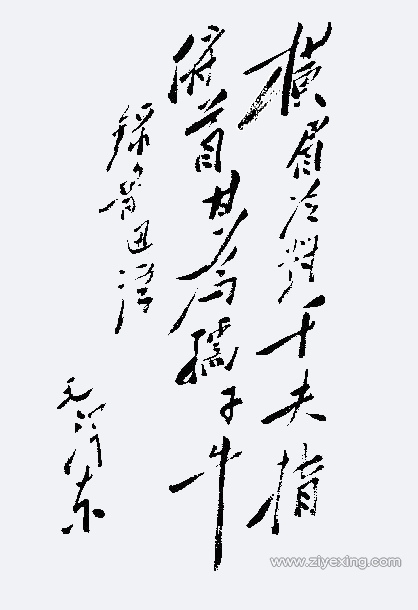 橫眉冷對千夫指
俯首甘为孺子牛
錄魯迅語
毛泽东
www.ziyexing.com